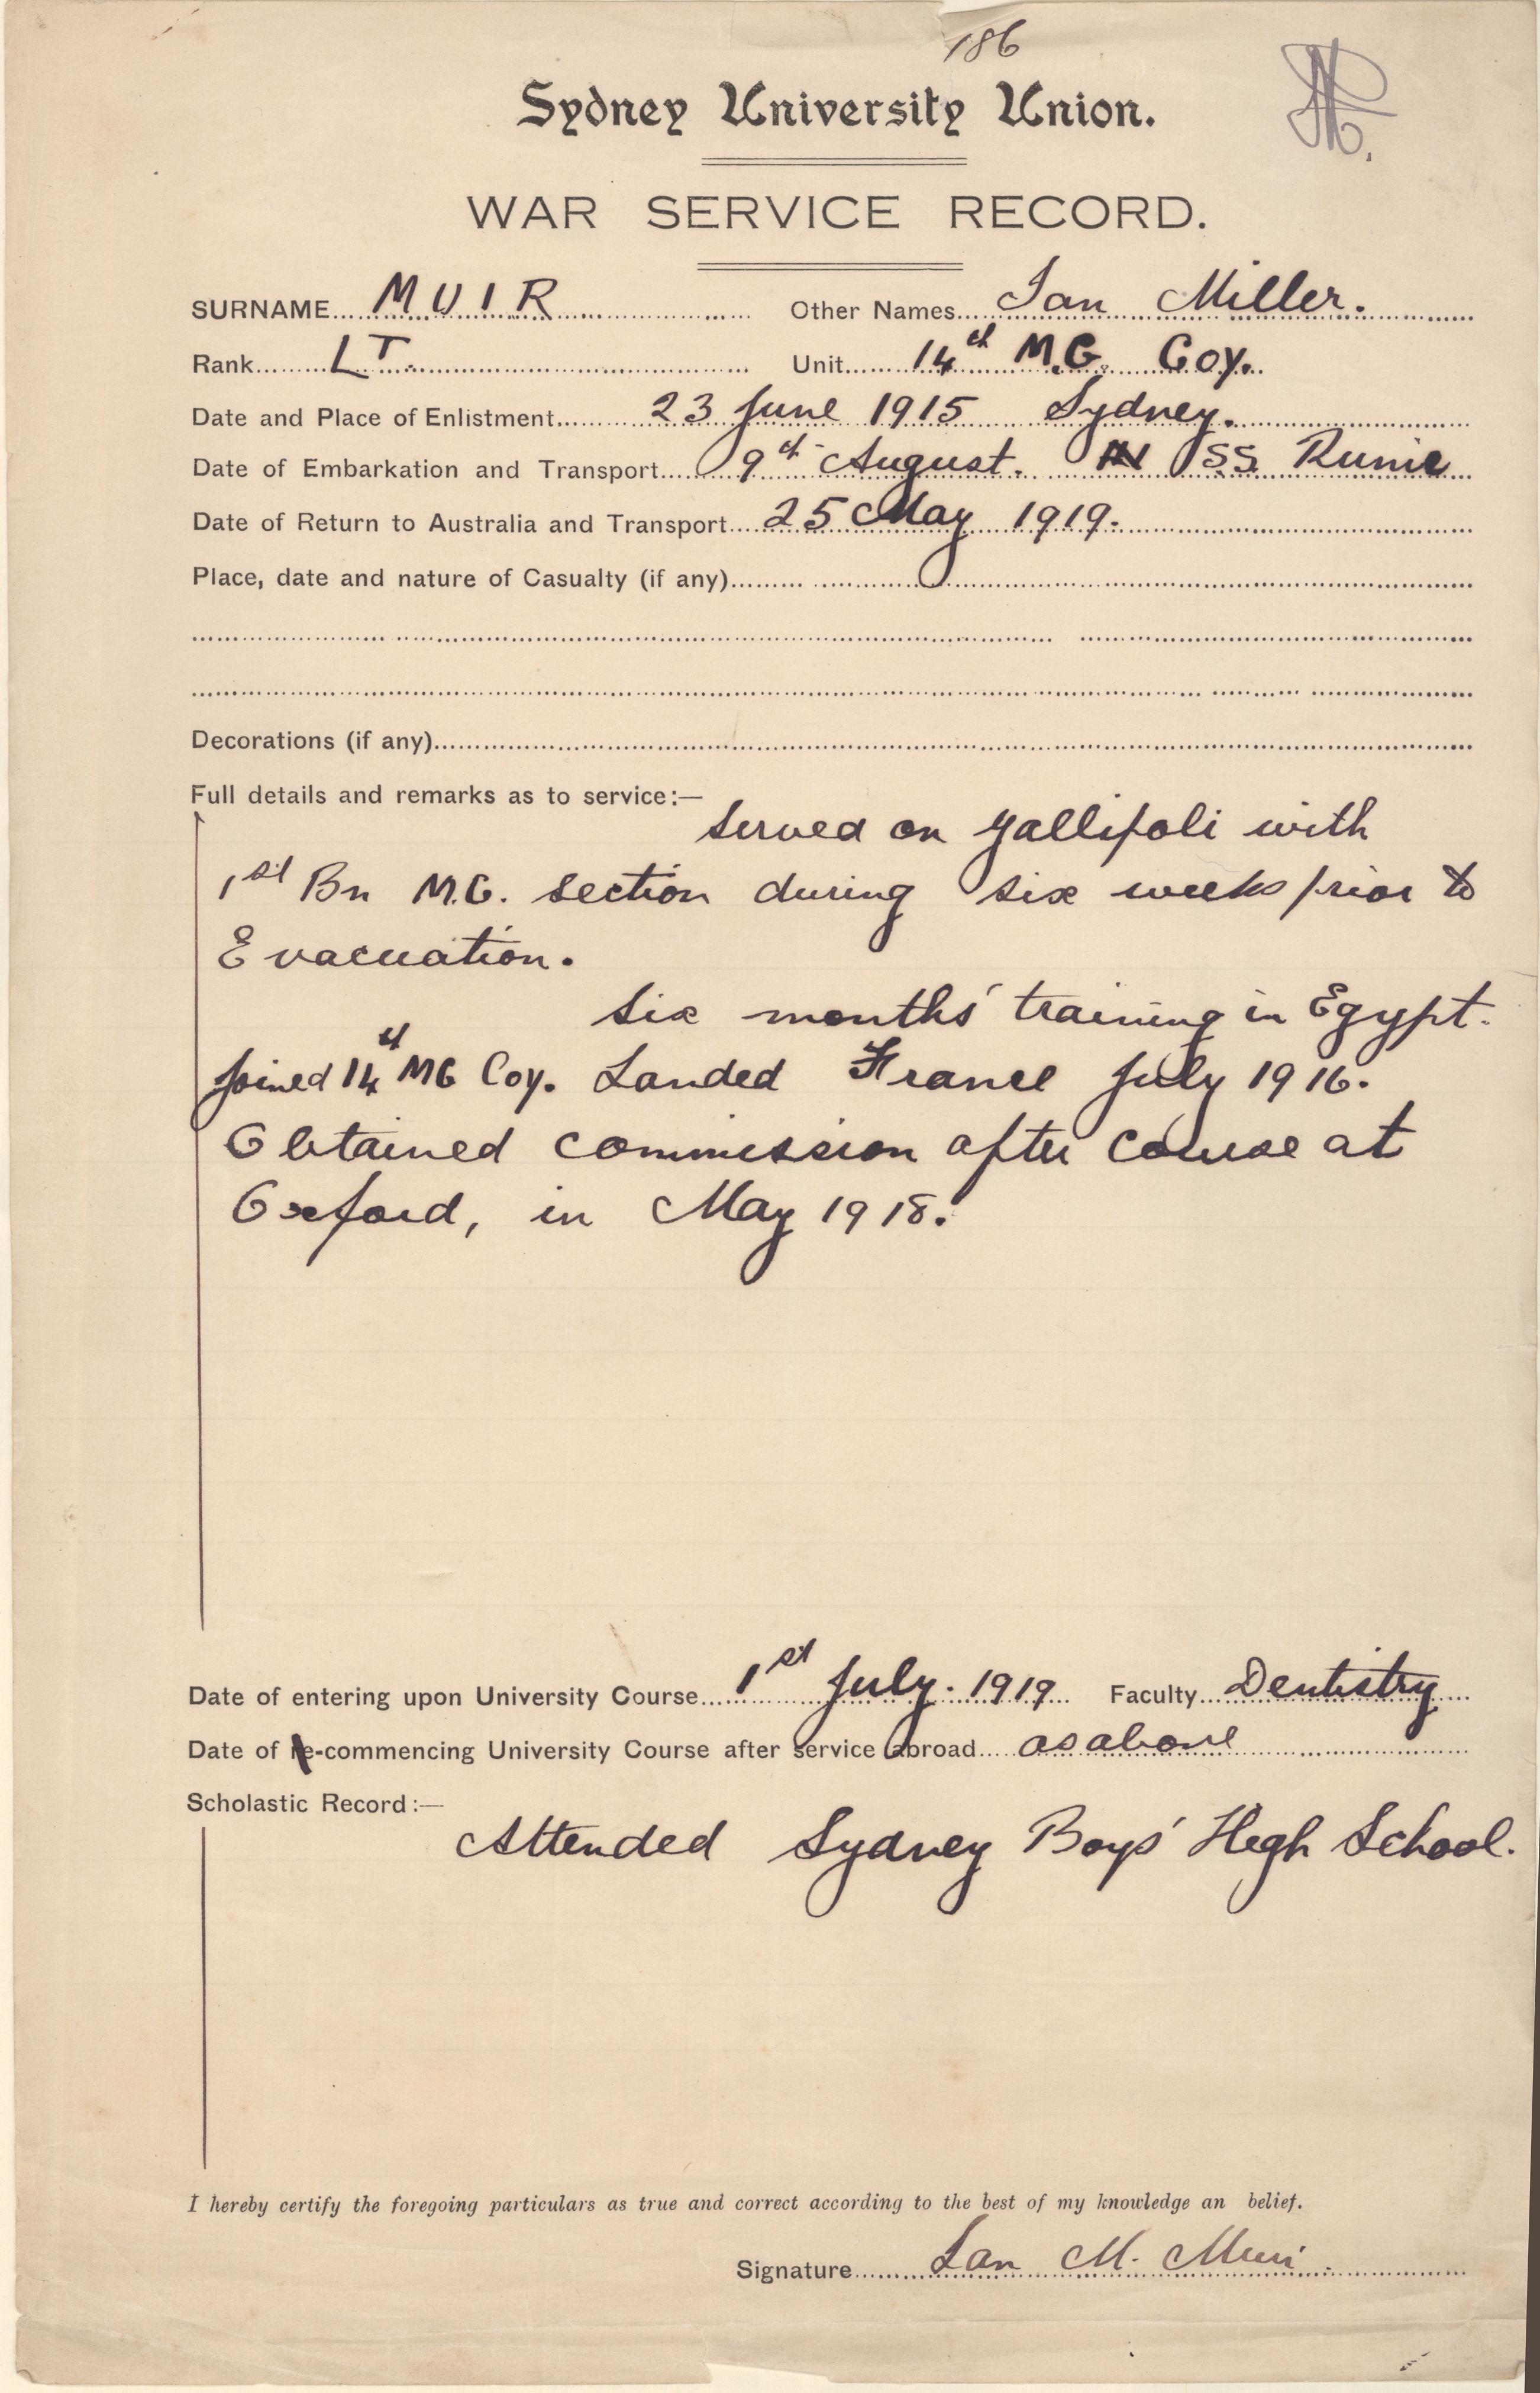 186
Sydney University Union.
WAR SERVICE RECORD.
SURNAME... MUIR Other Names... Ian Miller.
Rank... LT. Unit... 14th M.G. Coy.
Date and Place of Enlistment... 23 June 1915 Sydney.
Date of Embarkation and Transport... 9th August. IN SS Runic
Date of Return to Australia and Transport... 25 May 1919.
Place, date and nature of Casualty (if any)...
Decorations (if any)...
Full details and remarks as to service:—
Served on Gallipoli with
1st Bn M.G. section during six weeks prior to
Evacuation.
Six months' training in Egypt.
Joined 14th MG Coy. Landed France July 1916.
Obtained commission after course at
Oxford, in May 1918.
Date of entering upon University Course... 1st July. 1919 Faculty... Dentistry
Date of re-commencing University Course after service abroad... as above
Scholastic Record:—
Attended Sydney Boys' High School.
I hereby certify the foregoing particulars as true and correct according to the best of my knowledge an belief.
Signature... Ian M. Muir